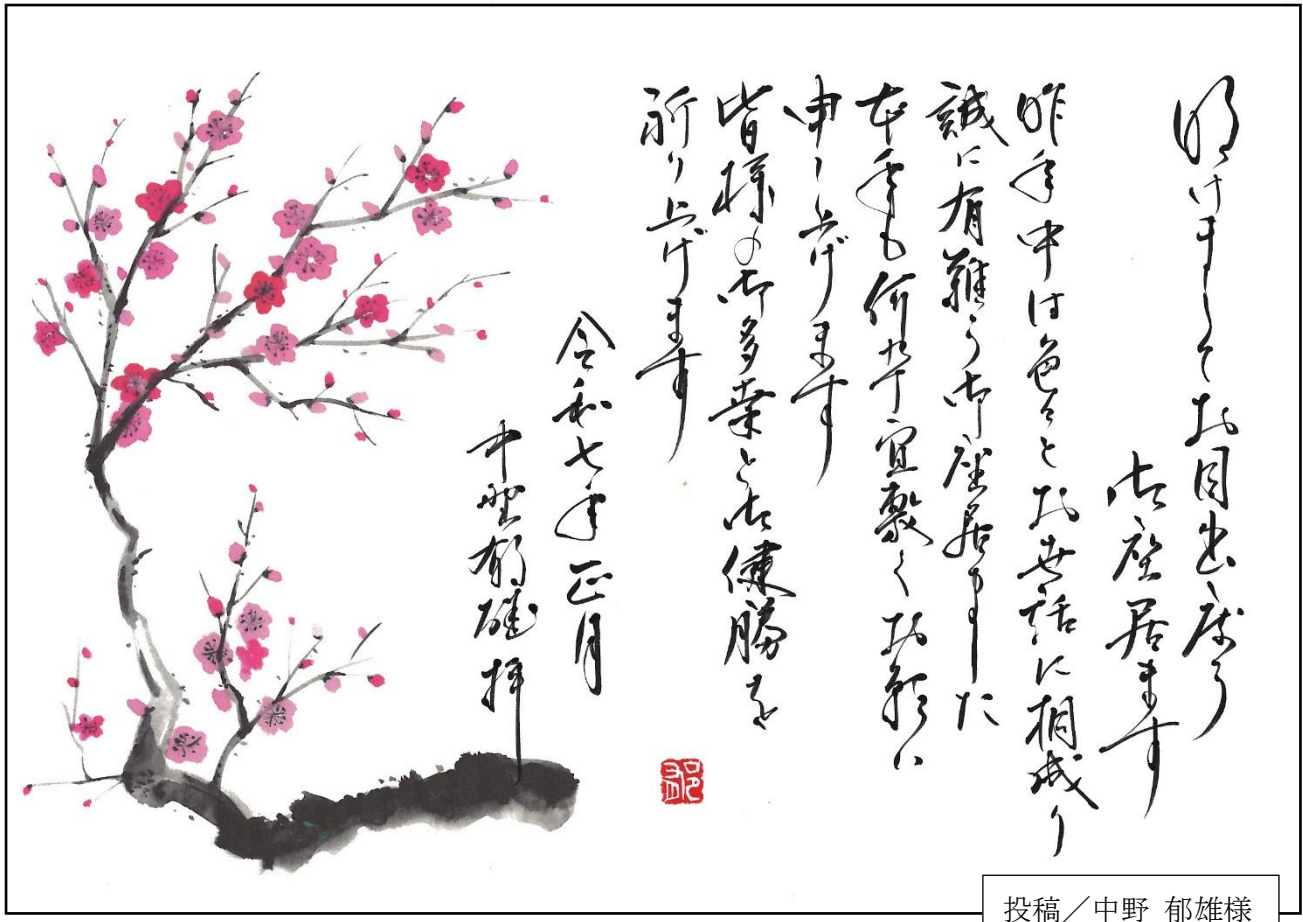 明けましてお目出度う
御座居ます
昨年中は色々とお世話に相成り
誠に有難う御座居ました
本年も何卒宜敷くお願い
申し上げます
皆様の御多幸と御健勝を
祈り上げます
令和七年正月
中野郁雄拝
郁
投稿／中野 郁雄様